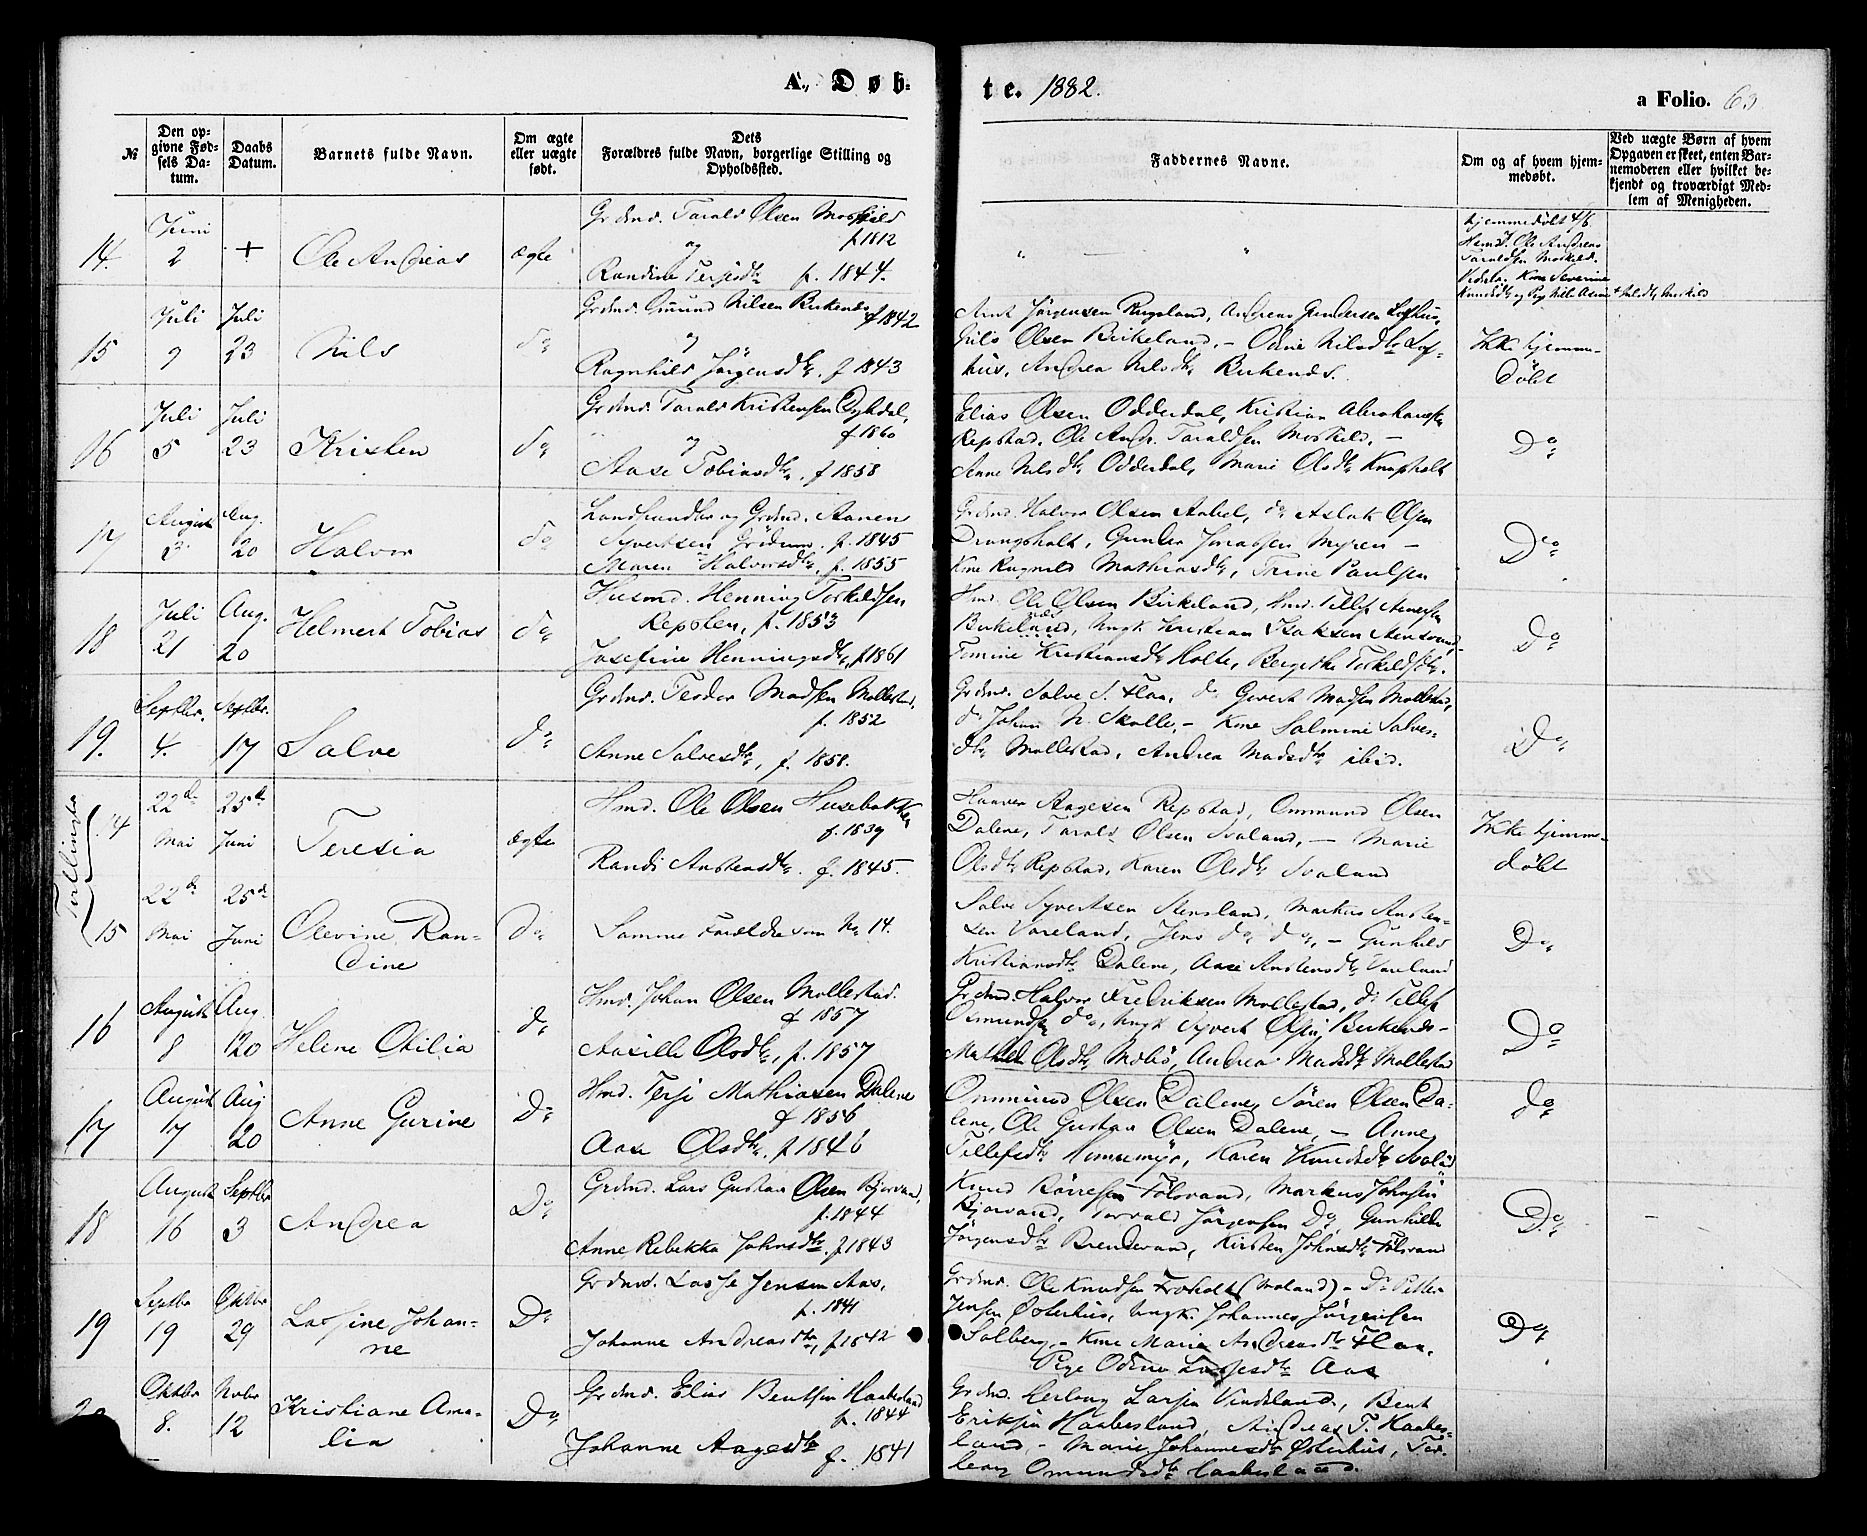 A., Døb-
te. 1882.
a Folio. 63
№
Den op-
givne Fød-
sels Da-
tum.
Daabs
Datum.
Barnets fulde Navn.
Om ægte
eller uægte
født.
Dets
Forældres fulde Navn, borgerlige Stilling og
Opholdssted.
Faddernes Navne.
Om og af hvem hjem-
medøbt.
Ved uægte Børn af hvem
Opgaven er skeet, enten Bar-
nemoderen eller hvilket be-
kjendt og troværdigt Med-
lem af Menigheden.
14. Juni 2 + Ole Andreas ægte
Grdmd. Tarald Olsen Moskild
f 1812
og
Randine Terjesdtr f. 1844.
" — "
hjemmedøbt 4/6
Ole Andreas
Taraldsen Moskild.
Kone Severine
15 Juli 9 Juli 23 Nils do
Grdmd. Gunund Nilsen Birkenes f 1842
og
Ragnhild Jørgensdtr. f 1843
Arnt Jørgensen Rugsland, Andreas Gundersen Lofthus,
Nils Olsen Birkeland, – Odine Nilsdtr Lof-
thus, Andrea Nilsdtr Birkenes.
Ikke hjemme-
døbt
16 Juli 5 Juli 23 Kristen do
Grdmd. Tarald Kristensen Dybdal,
f 1860
og
Aase Tobiasdtr, f 1858
Elias Olsen Odderdal, Kristian Abrahamsen
Repstad, Ole Andr. Taraldsen Moskild, –
Anne Nilsdtr Odderdal, Marie Olsdtr Knapholt
Do
17 August 2. Aug. 20 Halvor do
Landhandler og Grdmd. Aanen
Syvertsen f. 1845
Maren Halvorsdtr, f. 1855
Grdmd. Halvor Olsen Aabel, do Aslak Olsen
Drangsholt, Gunder Jonassen Myren –
Kone Ragnild Mathiasdtr, Trine Paulsen
Do
18 Juli 21 Aug. 20 Helmert Tobias do
Husmd. Henning Torkildsen
Repsten, f. 1853
Josefine Henningsdtr, f 1861
Hmd. Ole Olsen Birkeland, Hmd. Tellef
Birkeland, Ungk Kristian Isaksen
Tomine Kristiansdtr Holte, Bergithe Torkildsdtr.
Do
19. Septbr. 4. Septbr. 17 Salve do
Grdmd. Teodor Madsen Mollestad,
f. 1852
Anne Salvesdtr, f. 1858.
Grdmd. Salve S. Flaa, do Gjvert Madsen Mollestad,
do Johan N. Skolle, – Kone Salmine Salves-
dtr Mollestad, Andrea Madsdtr ibid.
Do
Tvillinger
14 22de Mai 25de Juni Teresia ægte
Hmd. Ole Olsen Husebakken
f. 1839
Randi Anstensdtr. f. 1845.
Haaver Aagesen Repstad, Ommund Olsen
Dalene, Tarald Olsen Svaland, – Marie
Olsdtr Repstad, Karen Olsdtr Svaland
Ikke hjemme-
døbt
15 22de Mai 25de Juni Olevine Ran-
dine Do
Samme Forældre som No 14.
Salve Syvertsen Stensland, Markus Ansten-
sen Vareland, Jens do, do, – Gunhild
Kristiansdtr Dalene, Aase Anstensdtr Vareland
Do
16 August 8 Aug. 20 Helene Otilia do
Hmd. Johan Olsen Mollestad.
f 1857
Aasille Olsdtr, f. 1857
Grdmd. Halvor Fredriksen Mollestad, do Tellef
Osmundsen do, Ungk Syvert Olsen Birkenes –
Olsdtr Mobø, Andrea Madsdtr Mollestad
Do
17 August 17 Aug 20 Anne Gurine Do
Hmd. Terje Mathiasen Dalene
f 1856
Aase Olsdtr. f 1846
Ommund Olsen Dalene, Søren Olsen Da-
lene, Ole Gustav Olsen Dalene, – Anne
Tellefsdtr Himemyr, Karen Knudsdtr Svaland
do
18 August 16 Septbr 3 Andrea Do
Grdmd. Lars Gustav Olsen Bjorvand,
f. 1844
Anne Rebekka Johnsdtr. f 1843
Knud Børresen Tolsvand, Markus Johnsen
Bjorvand, Torvald Jørgensen Do, Gunhilde
Jørgensdtr Brendevand, Kirsten Johnsdtr Tolsvand
Do
19 Septbr 19 Oktbr 29 Lassine Johan-
ne Do
Grdmd. Lasse Jensen Aas,
f. 1841
Johanne Andreasdtr, f 1842
Grdmd. Ole Knudsen Froholt (Moland) – Do Petter
Jensen Østerhus, Ungk. Johannes Jørgensen
Solberg – Kone Marie Andreasdtr Flaa,
Pige Odine Lassesdtr Aas
Do
20 Oktbr 8. Novbr 12 Kristiane Ama-
lia Do
Grdmd. Elias Bentsen Haabesland
f. 1844
Johanne Aagesdtr f. 1841
Grdmd. Herlaug Larsen Vindsland, Bent
Eriksen Haabesland, Andreas T. Haabes-
land, – Marie Johannesdtr Østerhus, Tor-
Omundsdtr Haabesland.